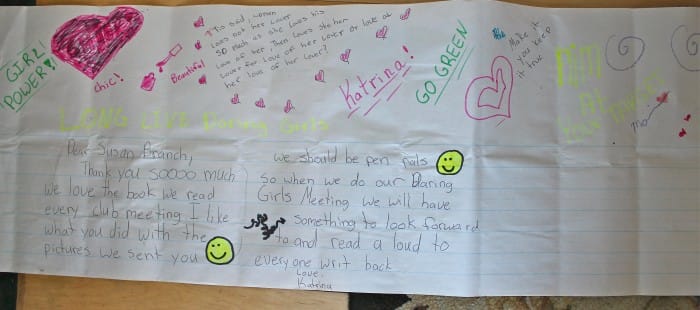 GIRL!
POWER!
chic!
Beautiful
Too sad, women
loves not her lover
so much as she loves his
love of her. Then loves she her
lover for love of her lover or love of
her love of her lover?
Katrina!
GO GREEN
Make it
you keep
it true
LONG LIVE Daring Girls
Dear Susan Branch,
Thank you soooo much
we love the book we read
every club meeting. I like
what you did with the
pictures we sent you
we should be pen pals
so when we do our Daring
Girls Meeting we will have
something to look forward
to and read a loud to
every one writ back
Love:
Katrina